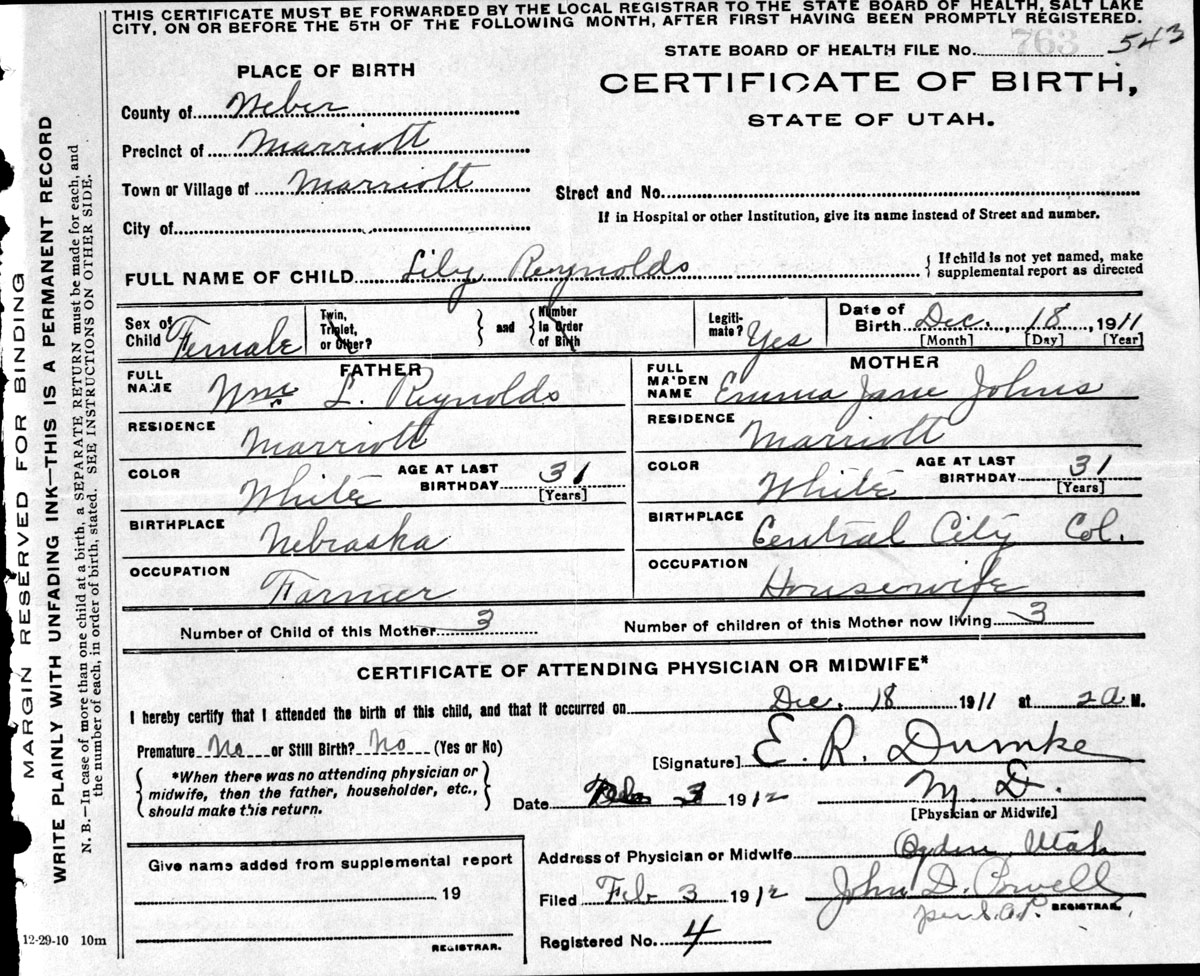 THIS CERTIFICATE MUST BE FORWARDED BY THE LOCAL REGISTRAR TO THE STATE BOARD OF HEALTH, SALT LAKE
CITY, ON OR BEFORE THE 5TH OF THE FOLLOWING MONTH, AFTER FIRST HAVING BEEN PROMPTLY REGISTERED.
STATE BOARD OF HEALTH FILE No. 763 543
PLACE OF BIRTH
CERTIFICATE OF BIRTH,
STATE OF UTAH.
County of Weber
Precinct of Marriott
Town or Village of Marriott
Street and No.
If in Hospital or other Institution, give its name instead of Street and number.
City of
FULL NAME OF CHILD Lily Reynolds
{ If child is not yet named, make
supplemental report as directed
Sex of
Child Female
Twin,
Triplet,
or Other?
} and {
Number
in Order
of Birth
Legiti-
mate? Yes
Date of
Birth Dec. 18, 1911
[Month] [Day] [Year]
FATHER
FULL
NAME Wm L. Reynolds
RESIDENCE Marriott
COLOR White
AGE AT LAST
BIRTHDAY 31
[Years]
BIRTHPLACE Nebraska
OCCUPATION Farmer
MOTHER
FULL
MAIDEN
NAME Emma Jane Johns
RESIDENCE Marriott
COLOR White
AGE AT LAST
BIRTHDAY 31
[Years]
BIRTHPLACE Central City Col.
OCCUPATION Housewife
Number of Child of this Mother 3
Number of children of this Mother now living 3
CERTIFICATE OF ATTENDING PHYSICIAN OR MIDWIFE*
I hereby certify that I attended the birth of this child, and that it occurred on Dec. 18 1911 at 2 a M.
Premature No or Still Birth? No (Yes or No)
{ *When there was no attending physician or
midwife, then the father, householder, etc.,
should make this return. }
[Signature] E. R. Dumke
M. D.
[Physician or Midwife]
Date Feb 3 1912
Give name added from supplemental report
19
REGISTRAR.
Address of Physician or Midwife Ogden, Utah
Filed Feb 3 1912 John D. Powell
per S.A.P. REGISTRAR.
Registered No. 4
12-29-10 10m
MARGIN RESERVED FOR BINDING
WRITE PLAINLY WITH UNFADING INK—THIS IS A PERMANENT RECORD
N. B.—In case of more than one child at a birth, a SEPARATE RETURN must be made for each, and
the number of each, in order of birth, stated. SEE INSTRUCTIONS ON OTHER SIDE.